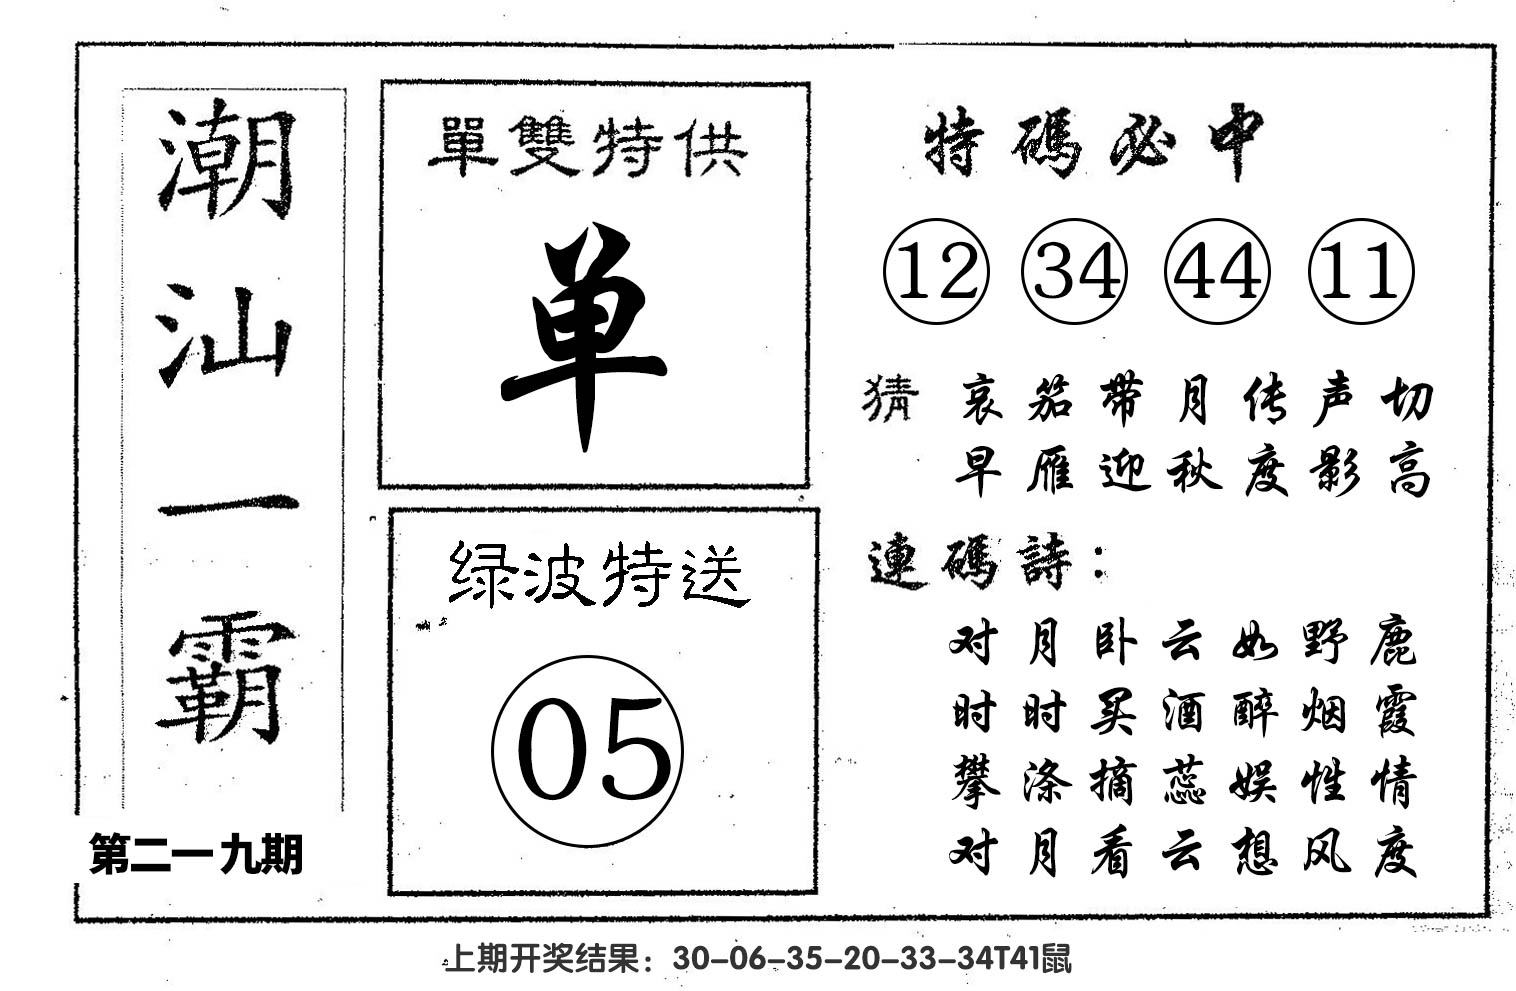 潮汕一霸
第二一九期
單雙特供
单
绿波特送
05
特碼必中
12 34 44 11
猜 哀笳带月传声切
早雁迎秋度影高
連碼詩：
对月卧云如野鹿
时时买酒醉烟霞
攀涤摘蕊娱性情
对月看云想风度
上期开奖结果：30-06-35-20-33-34T41鼠